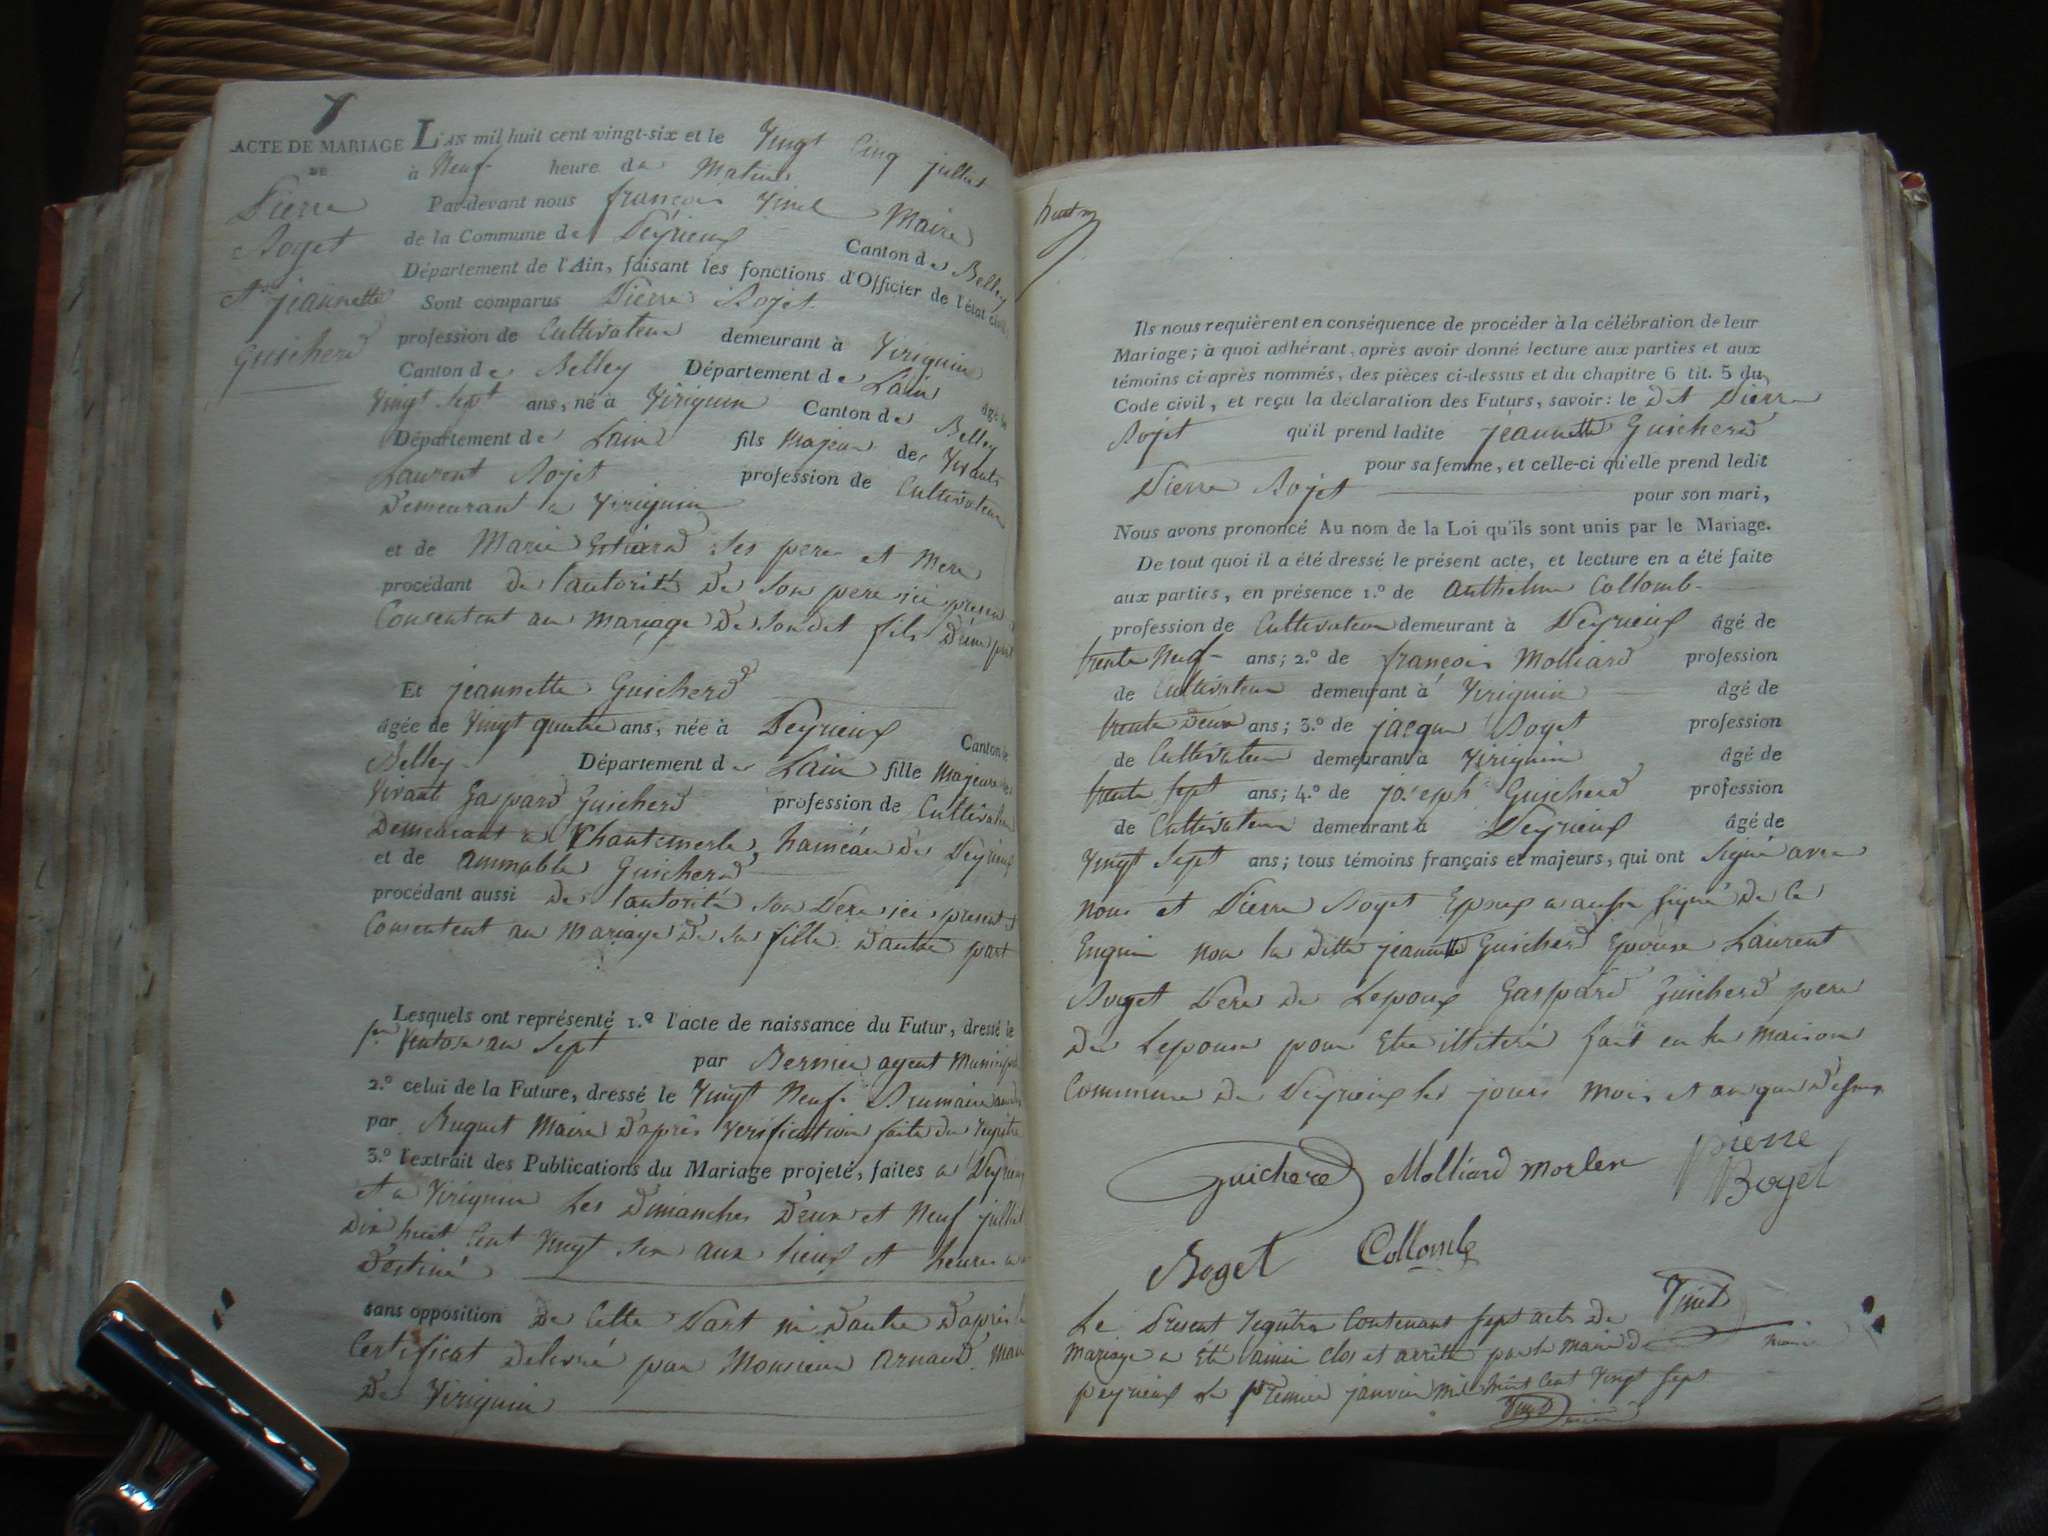 ACTE DE MARIAGE
DE
Pierre
Roget
Et jeannette
Guicherd
L'AN mil huit cent vingt-six et le Vingt Cinq juillet
à Neuf heure du Matin
Par-devant nous françois Vinet Maire
de la Commune de Peyrieux Canton de Belley
Département de l'Ain, faisant les fonctions d'Officier de l'état civil
Sont comparus Pierre Roget
profession de Cultivateur demeurant à Virignin
Canton de Belley Département de Lain âgé de
Vingt Sept ans, né à Virignin Canton de Belley
Département de Lain fils Majeur de Vivants
Laurent Roget profession de Cultivateur
Demeurant a Virignin
et de Marie ses pere et Mere
procédant de l'autorité De Son pere ici present
Consentent au mariage De Son dit fils D'une part
Et jeannette Guicherd
âgée de Vingt quatre ans, née à Peyrieux Canton de
Belley Département de Lain fille Majeure
Vivant Gaspard Guicherd profession de Cultivateur
Demeurant a Chantemerle hameau de Peyrieux
et de ammable Guicherd
procédant aussi De l'autorité son Pere ici present
Consentent au Mariage De sa fille D'autre part
Lesquels ont représenté 1.º l'acte de naissance du Futur, dressé le
Ventose an Sept par Bernier agent Municipal
2.º celui de la Future, dressé le Vingt Neuf Brumaire
par Buquet Maire D'après Verification faite du registre
3.º l'extrait des Publications du Mariage projeté, faites a Peyrieux
et a Virignin Les Dimanches Deux et Neuf juillet
Dix huit Cent Vingt Six aux Lieux et heures a
Destiné
sans opposition De Cette Part ni D'autre D'après le
Certificat delivré par Monsieur arnaud Maire
De Virignin
Ils nous requièrent en conséquence de procéder à la célébration de leur
Mariage; à quoi adhérant, après avoir donné lecture aux parties et aux
témoins ci-après nommés, des pièces ci-dessus et du chapitre 6 tit. 5 du
Code civil, et reçu la déclaration des Futurs, savoir: le Dit Pierre
Roget qu'il prend ladite jeannette Guicherd
pour sa femme, et celle-ci qu'elle prend ledit
Pierre Roget pour son mari,
Nous avons prononcé Au nom de la Loi qu'ils sont unis par le Mariage.
De tout quoi il a été dressé le présent acte, et lecture en a été faite
aux parties, en présence 1.º de Anthelme Collomb
profession de Cultivateur demeurant à Peyrieux âgé de
trente Neuf ans; 2.º de françois Molliard profession
de Cultivateur demeurant à Virignin âgé de
trente Deux ans; 3.º de jacque Roget profession
de Cultivateur demeurant à Virignin âgé de
trente Sept ans; 4.º de joseph Guicherd profession
de Cultivateur demeurant à Peyrieux âgé de
Vingt Sept ans; tous témoins français et majeurs, qui ont Signé avec
nous et Pierre Roget Epoux a aussi signé De Ce
Enquis non la Ditte jeannette Guicherd Epouse Laurent
Roget Pere De Lepoux Gaspard Guicherd pere
De Lepouse pour Etre illitéré fait en la Maison
Commune De Peyrieux les jours Mois et an que Dessus
Guicherd Molliard Pierre
Roget
Roget Collomb
Vinet
maire
Le Present registre Contenant Sept acts De
Mariage a Eté ainsi clos et arrêté par le Maire De
peyrieux Le Premier janvier Mil huit Cent Vingt Sept
Vinet maire